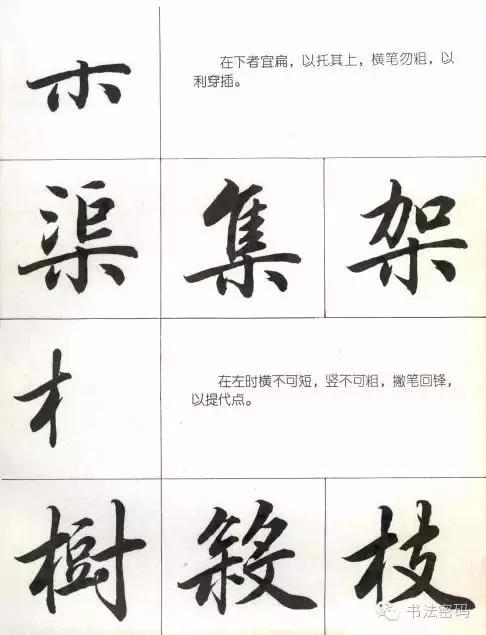 木
在下者宜扁，以托其上，横笔勿粗，以
利穿插。
渠 集 架
木
在左时横不可短，竖不可粗，撇笔回锋，
以提代点。
樹 枝
书法密码